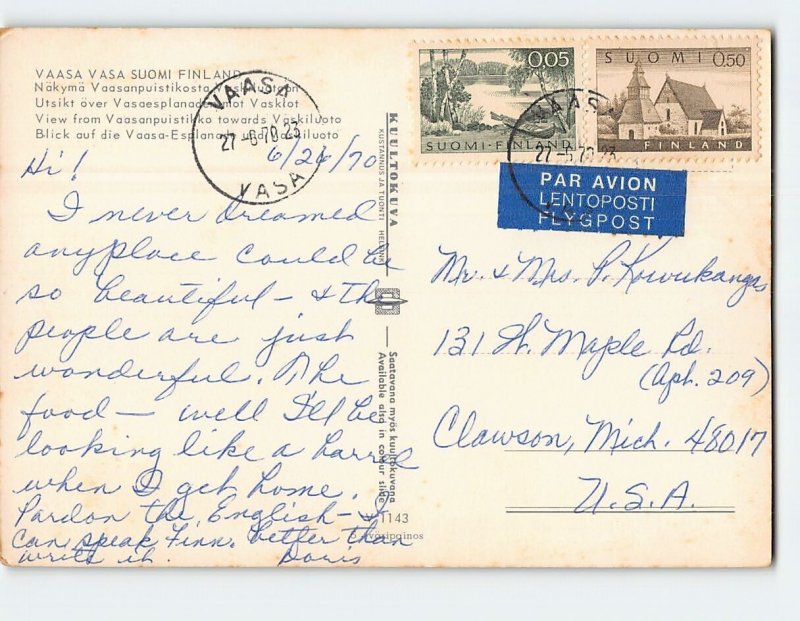 VAASA VASA SUOMI FINLAND
Näkymä Vaasanpuistikosta
Utsikt över Vasaesplanaden mot Vasklot
View from Vaasanpuistikko towards Vaskiluoto
Blick auf die Vaasa-Esplanade Vaskiluoto
VAASA
27-6.70.23
VASA
Hi! 6/26/70
I never dreamed
anyplace could be
so beautiful - & the
people are just
wonderful. The
food - well I'll be
looking like a barrel
when I get home.
Pardon the English - I
can speak Finn. better than
write it. Doris
KUULTOKUVA
KUSTANNUS JA TUONTI HELSINKI
Saatavana myös kuultokuvana
Available also in colour slide
1143
0.05
SUOMI-FINLAND
SUOMI 0.50
FINLAND
VAASA
27-6.70.23
PAR AVION
LENTOPOSTI
FLYGPOST
Mr. & Mrs. P.
131 W. Maple Rd.
(Apt. 209)
Clawson, Mich. 48017
U.S.A.